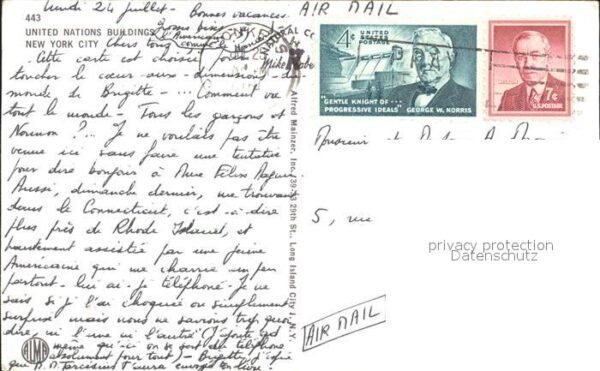 lundi 24 juillet - Bonnes vacances
AIR MAIL
443
UNITED NATIONS BUILDINGS
NEW YORK CITY
Chers tous
l'Américain
comme le
Cette carte est choisie pour
toucher le cœur aux dimensions du
monde de Brigitte - ... Comment va
tout le monde - Tous les garçons et
? ... Je ne voulais pas être
venue ici sans faire une tentative
pour dire bonjour à Mme Félix
Aussi, dimanche dernier, me trouvant
dans le Connecticut, c'est-à-dire
plus près de Rhode Island, et
hautement assistée par une jeune
Américaine qui me charrie un peu
partout - lui ai-je téléphoné - Je ne
sais si je l'ai choquée ou simplement
surprise mais nous ne savions trop quoi
dire, ni l'une ni l'autre (J'ajoute
même qu'ici on se sert du téléphone
absolument pour tout) - Brigitte,
que
Alfred Mainzer, Inc., 39-33 29th St., Long Island City 1, N.Y.
ALMA
4¢
UNITED STATES POSTAGE
"GENTLE KNIGHT OF ...
PROGRESSIVE IDEALS"
GEORGE W. NORRIS
7¢
U.S. POSTAGE
Monsieur et
5, rue
privacy protection
Datenschutz
AIR MAIL